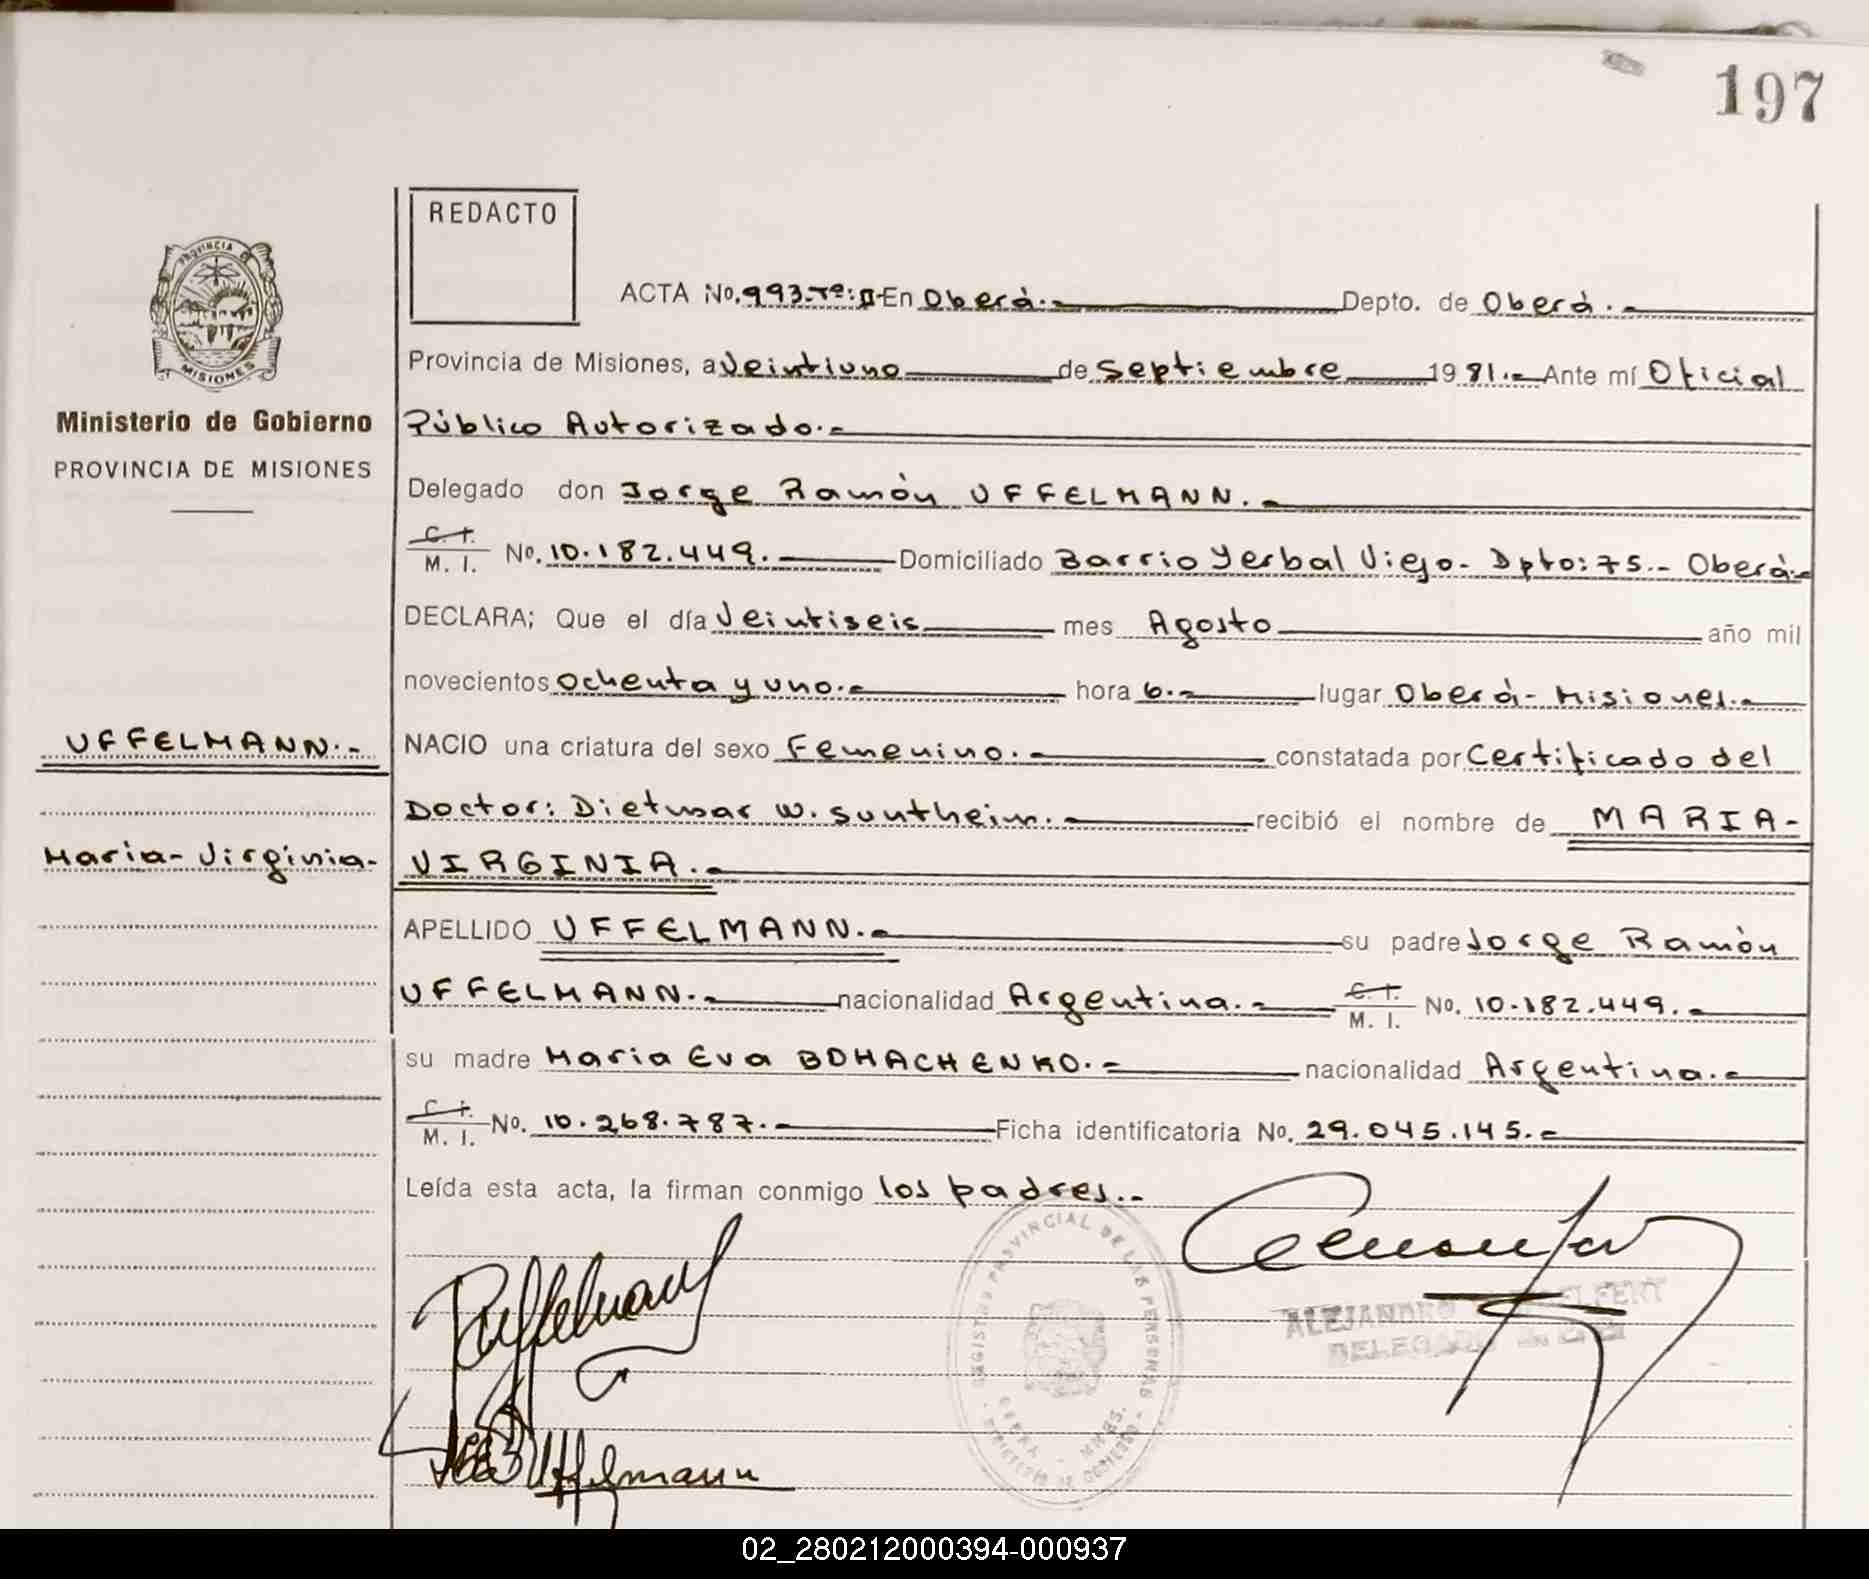 197
REDACTO
ACTA No. 993-Tº: II- En Oberá.- Depto. de Oberá.-
Provincia de Misiones, a Veintiuno de Septiembre 19 81.- Ante mí Oficial
Público Autorizado.-
Delegado don Jorge Ramón UFFELMANN.-
C. I.
M. I. No. 10.182.449.- Domiciliado Barrio Yerbal Viejo- Dpto: 75.- Oberá.-
DECLARA; Que el día Veintiseis mes Agosto año mil
novecientos ochenta y uno.- hora 6.- lugar Oberá- Misiones.-
NACIO una criatura del sexo Femenino.- constatada por Certificado del
Doctor: Dietmar W. Suntheim.- recibió el nombre de MARIA-
VIRGINIA.-
APELLIDO UFFELMANN.- su padre Jorge Ramón
UFFELMANN.- nacionalidad Argentina.- C. I.
M. I. No. 10.182.449.-
su madre Maria Eva BOHACHENKO.- nacionalidad Argentina.-
C. I.
M. I. No. 10.268.787.- Ficha identificatoria No. 29.045.145.-
Leída esta acta, la firman conmigo los padres.-
PROVINCIA DE
MISIONES
Ministerio de Gobierno
PROVINCIA DE MISIONES
UFFELMANN.-
Maria-Virginia-
Uffelmann
REGISTRO PROVINCIAL DE LAS PERSONAS
ALEJANDRO
DELEGADO
02_280212000394-000937